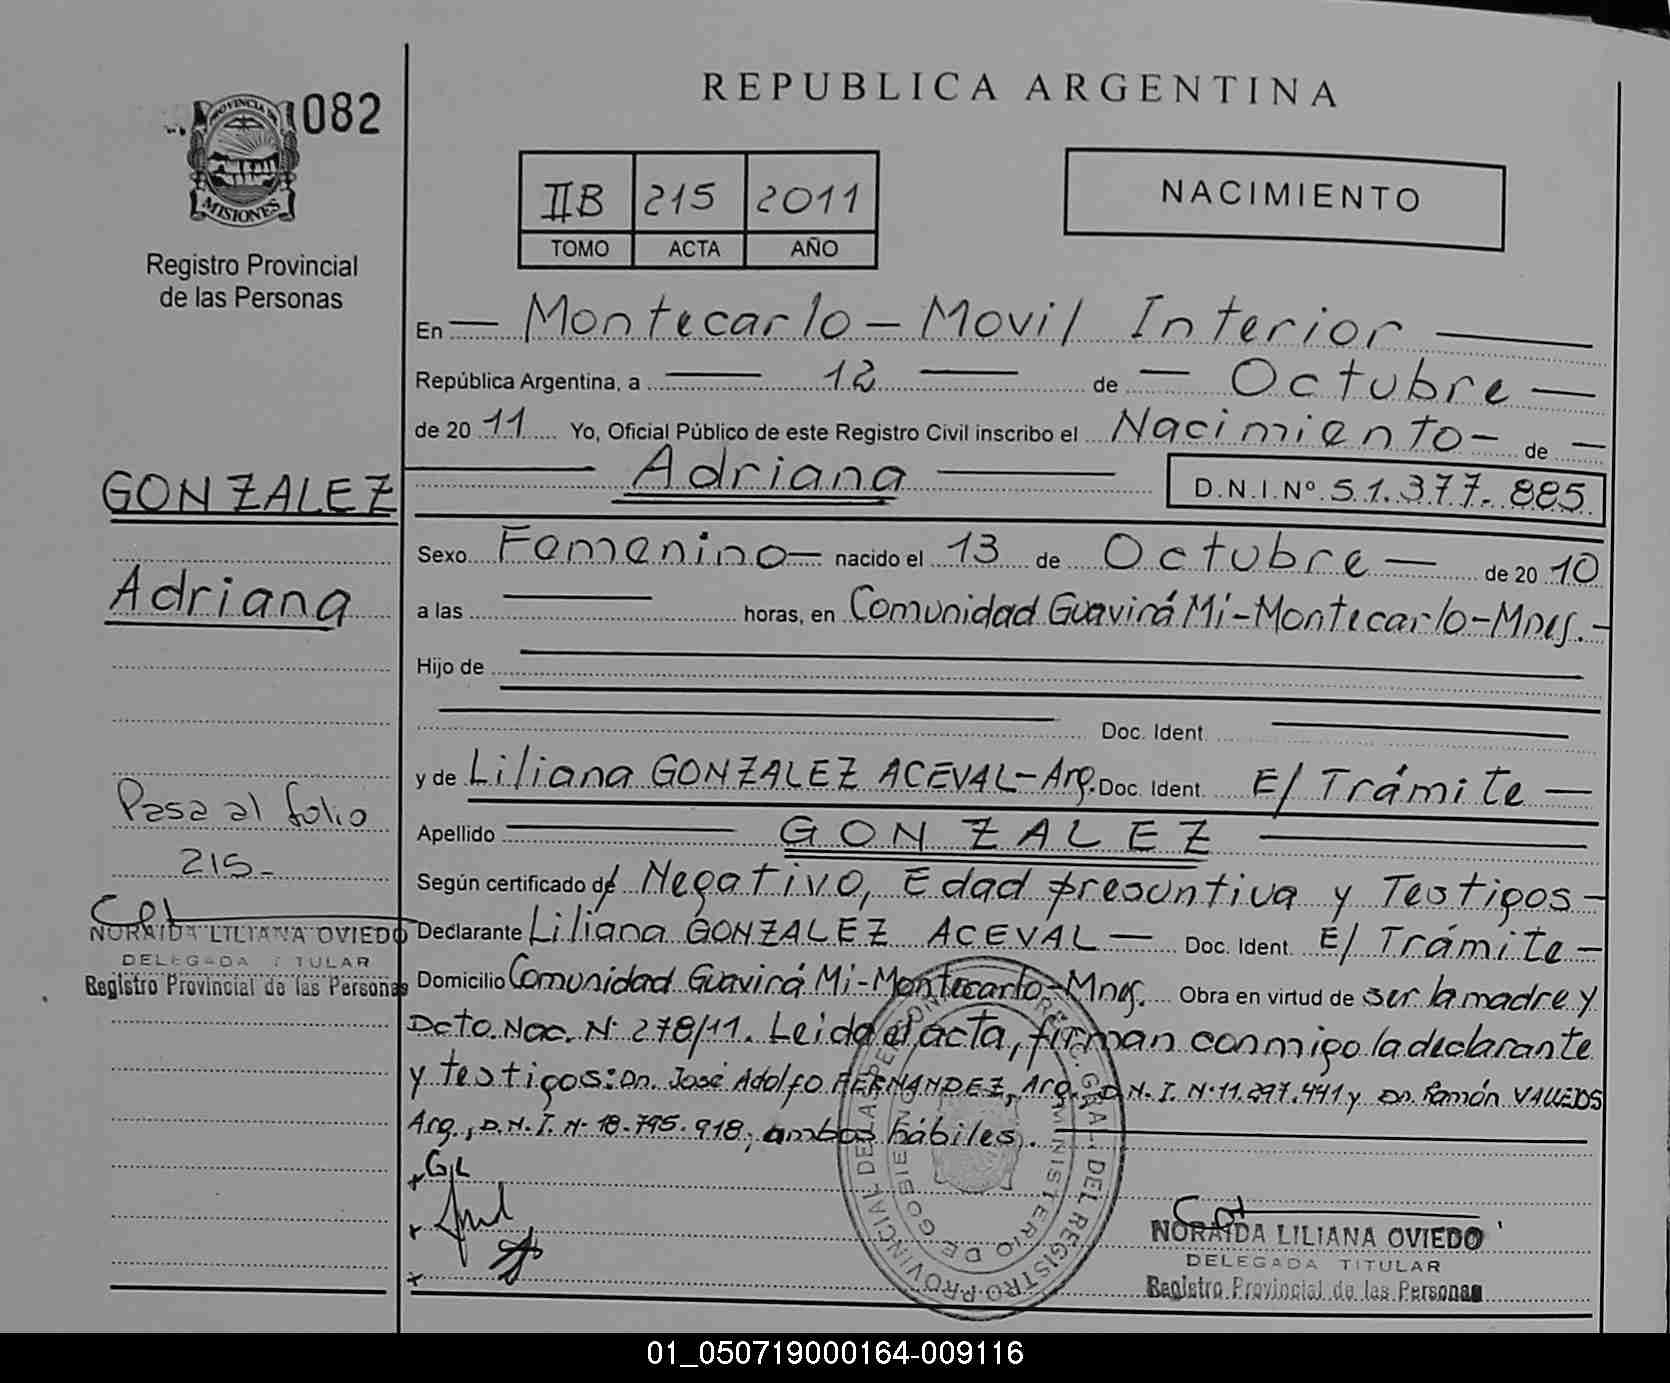 082
PROVINCIA DE
MISIONES
Registro Provincial
de las Personas
REPUBLICA ARGENTINA
IIB 215 2011
TOMO ACTA AÑO
NACIMIENTO
En — Montecarlo — Movil Interior —
República Argentina, a — 12 — de — Octubre —
de 20 11 Yo, Oficial Público de este Registro Civil inscribo el Nacimiento — de —
— Adriana — D.N.I.Nº 51.377.885
GONZALEZ
Adriana
Sexo Femenino — nacido el 13 de Octubre — de 20 10
a las — horas, en Comunidad Guavirá Mi-Montecarlo-Mnes.-
Hijo de
Doc. Ident.
y de Liliana GONZALEZ ACEVAL-Arg. Doc. Ident. E/Trámite —
Pasa al folio
215-
Apellido — GONZALEZ —
Según certificado de Negativo, Edad presuntiva y Testigos-
Declarante Liliana GONZALEZ ACEVAL — Doc. Ident. E/Trámite-
NORAIDA LILIANA OVIEDO
DELEGADA TITULAR
Registro Provincial de las Personas
Domicilio Comunidad Guavirá Mi-Montecarlo-Mnes. Obra en virtud de ser la madre y
Dcto. Nac. N: 278/11. Leida el acta, firman conmigo la declarante
y testigos: Dn. José Adolfo FERNANDEZ, Arg., D.N.I. N: 11.297.441 y Dn. Ramón VALLEJOS
Arg., D.N.I. N- 18.795.918, ambos hábiles.
REGISTRO PROVINCIAL DE LAS PERSONAS
MINISTERIO DE GOBIERNO
NORAIDA LILIANA OVIEDO
DELEGADA TITULAR
Registro Provincial de las Personas
01_050719000164-009116